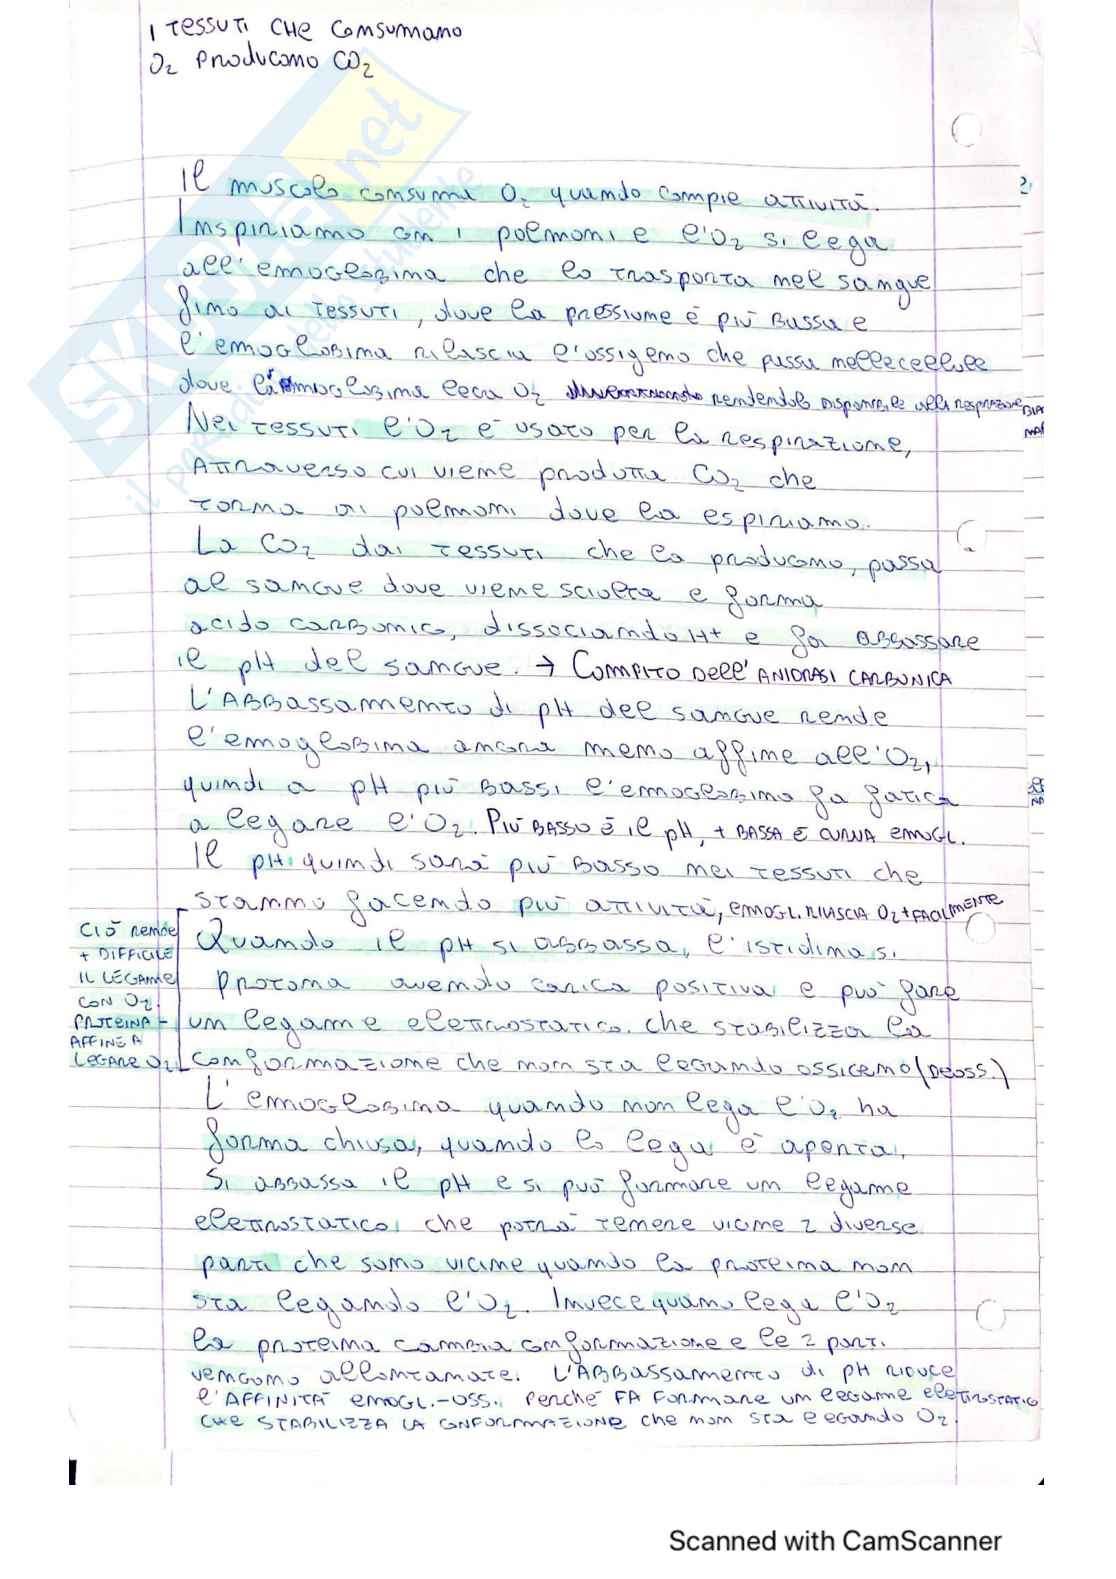 I TESSUTI CHE CONSUMANO
O2 PRODUCONO CO2
Il muscolo consuma O2 quando compie attività.
Inspiriamo con i polmoni e l'O2 si lega
all'emoglobina che lo trasporta nel sangue
fino ai tessuti, dove la pressione è più bassa e
l'emoglobina rilascia l'ossigeno che passa nelle cellule
dove la mioglobina lega O2 rendendolo disponibile alla respirazione
Nei tessuti l'O2 è usato per la respirazione,
Attraverso cui viene prodotta CO2 che
torna ai polmoni dove la espiriamo.
La CO2 dai tessuti che la producono, passa
al sangue dove viene sciolta e forma
acido carbonico, dissociando H+ e fa abbassare
il pH del sangue. → COMPITO DELL' ANIDRASI CARBONICA
L'Abbassamento di pH del sangue rende
l'emoglobina ancora meno affine all'O2,
quindi a pH più bassi l'emoglobina fa fatica
a legare l'O2. PIÙ BASSO È IL pH, + BASSA È CURVA EMOGL.
Il pH quindi sarà più basso nei tessuti che
stanno facendo più attività, EMOGL. RILASCIA O2 + FACILMENTE
Quando il pH si abbassa, l'istidina si
protona avendo carica positiva e può fare
un legame elettrostatico che stabilizza la
conformazione che non sta legando ossigeno (DEOSS.)
CIÒ RENDE
+ DIFFICILE
IL LEGAME
CON O2
PROTEINA -
AFFINE A
LEGARE O2
L'emoglobina quando non lega l'O2 ha
forma chiusa, quando lo lega è aperta.
Si abbassa il pH e si può formare un legame
elettrostatico che potrà tenere vicine 2 diverse
parti che sono vicine quando la proteina non
sta legando l'O2. Invece quano lega l'O2
la proteina cambia conformazione e le 2 parti
vengono allontanate. L'ABBASSAMENTO di pH RIDUCE
l'AFFINITÀ EMOGL.-OSS. PERCHÉ FA FORMARE UN LEGAME ELETTROSTATICO
CHE STABILIZZA LA CONFORMAZIONE CHE NON STA LEGANDO O2.
SKUOLA.net
il paradiso dello studente
Scanned with CamScanner